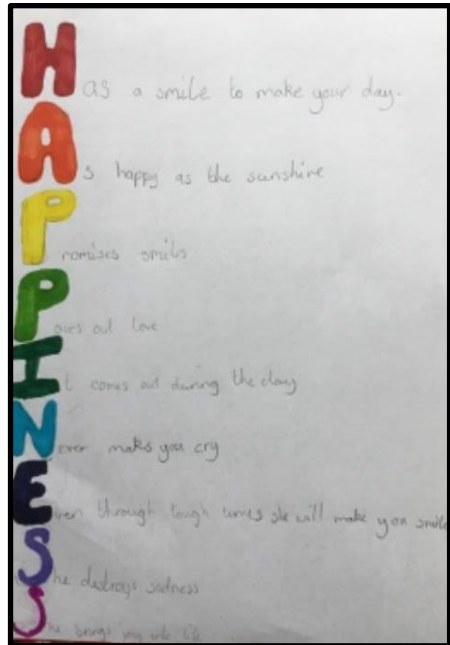 Has a smile to make your day.
As happy as the sunshine
Promises smiles
Pours out love
It comes out during the day
Never makes you cry
Even through tough times she will make you smile
She destroys sadness
She brings joy into life